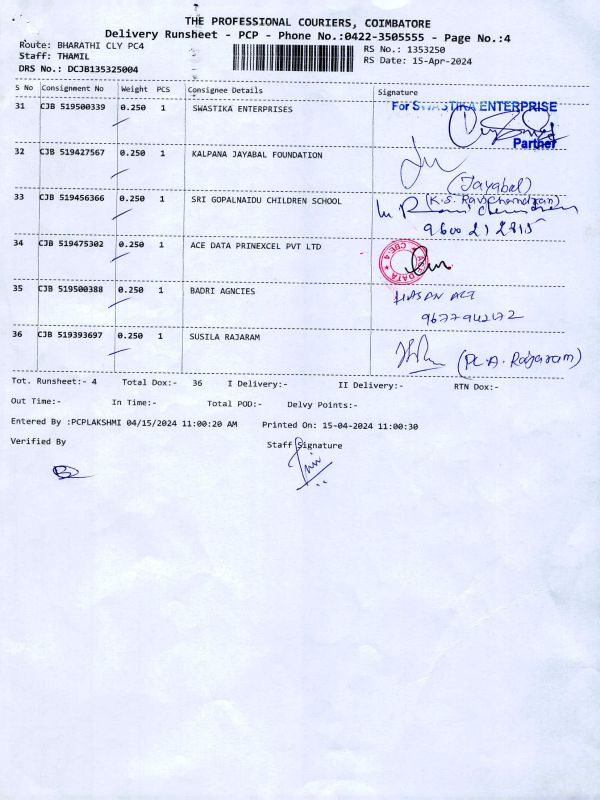 THE PROFESSIONAL COURIERS, COIMBATORE
Delivery Runsheet - PCP - Phone No.:0422-3505555 - Page No.:4
Route: BHARATHI CLY PC4
Staff: THAMIL
DRS No.: DCJB135325004
RS No.: 1353250
RS Date: 15-Apr-2024
S No Consignment No Weight PCS Consignee Details Signature
31 CJB 519500339 0.250 1 SWASTIKA ENTERPRISES
For SWASTIKA ENTERPRISE
Partner
32 CJB 519427567 0.250 1 KALPANA JAYABAL FOUNDATION
(Jayabal)
33 CJB 519456366 0.250 1 SRI GOPALNAIDU CHILDREN SCHOOL
(K.S. Ravichandran)
34 CJB 519475302 0.250 1 ACE DATA PRINEXCEL PVT LTD
35 CJB 519500388 0.250 1 BADRI AGNCIES
36 CJB 519393697 0.250 1 SUSILA RAJARAM
Tot. Runsheet:- 4 Total Dox:- 36 I Delivery:- II Delivery:- RTN Dox:-
Out Time:- In Time:- Total POD:- Delvy Points:-
Entered By :PCPLAKSHMI 04/15/2024 11:00:20 AM Printed On: 15-04-2024 11:00:30
Verified By Staff Signature